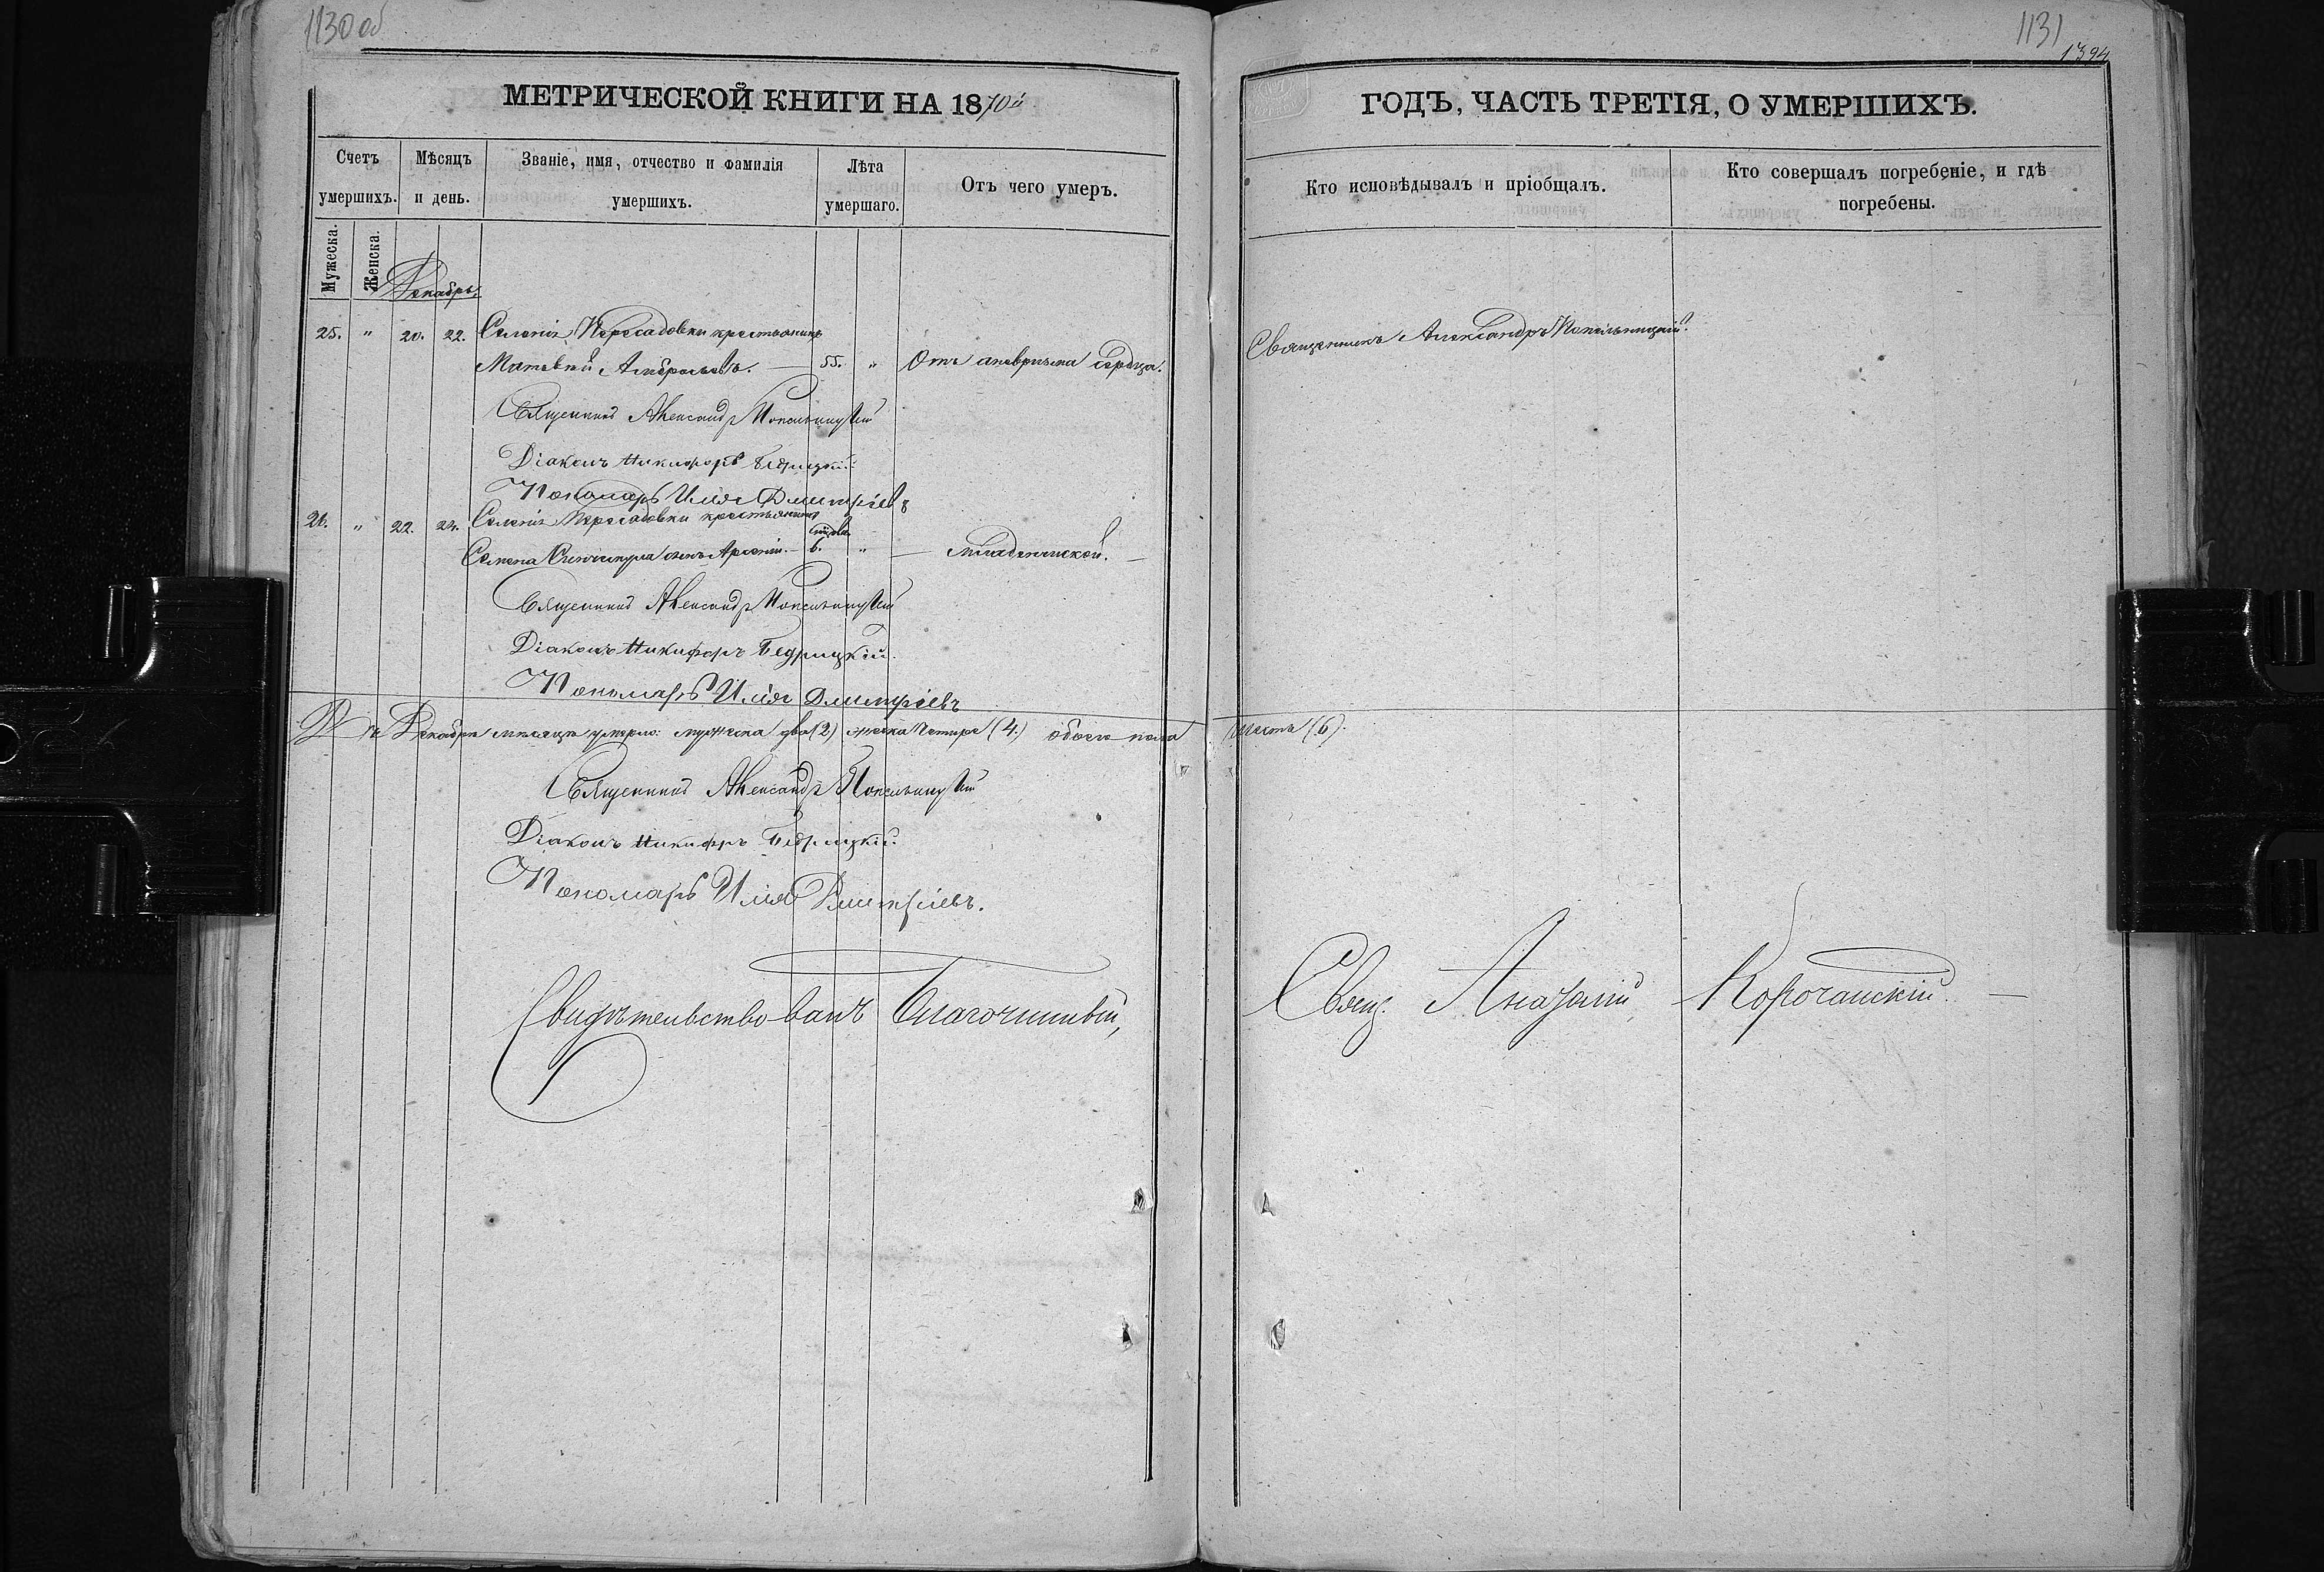 1130 об
МЕТРИЧЕСКОЙ КНИГИ НА 1870й
Счетъ умершихъ.
Мѣсяцъ и день.
Званіе, имя, отчество и фамилія умершихъ.
Лѣта умершаго.
Отъ чего умеръ.
Мужеска.
Женска.
Декабрь
25. " 20. 22. Селенія Пересадовки крестьянинъ
Матвѣй 55. " Отъ аневризма сердца.
Священникъ Александръ Копельницкій
Діаконъ Никифоръ Бедрицкій.
Пономарь Илія Димитріевъ
26. " 22. 24. Селенія Пересадовки крестьянина
Семена сынъ Арсеній. – 6. " – младенческой. –
Священникъ Александръ Копельницкій
Діаконъ Никифоръ Бедрицкій.
Пономарь Илія Димитріевъ
Въ Декабрѣ мѣсяцѣ умерло: мужеска два (2) женска четыре (4.) обоего пола
Священникъ Александръ Копельницкій
Діаконъ Никифоръ Бедрицкій.
Пономарь Илія Димитріевъ.
Свидѣтельствовалъ Благочинный,
1131
1394
ГОДЪ, ЧАСТЬ ТРЕТІЯ, О УМЕРШИХЪ.
Кто исповѣдывалъ и пріобщалъ.
Кто совершалъ погребеніе, и гдѣ погребены.
Священникъ Александръ Копельницкій.
шесть (6).
Свящ. Корочанскій. –